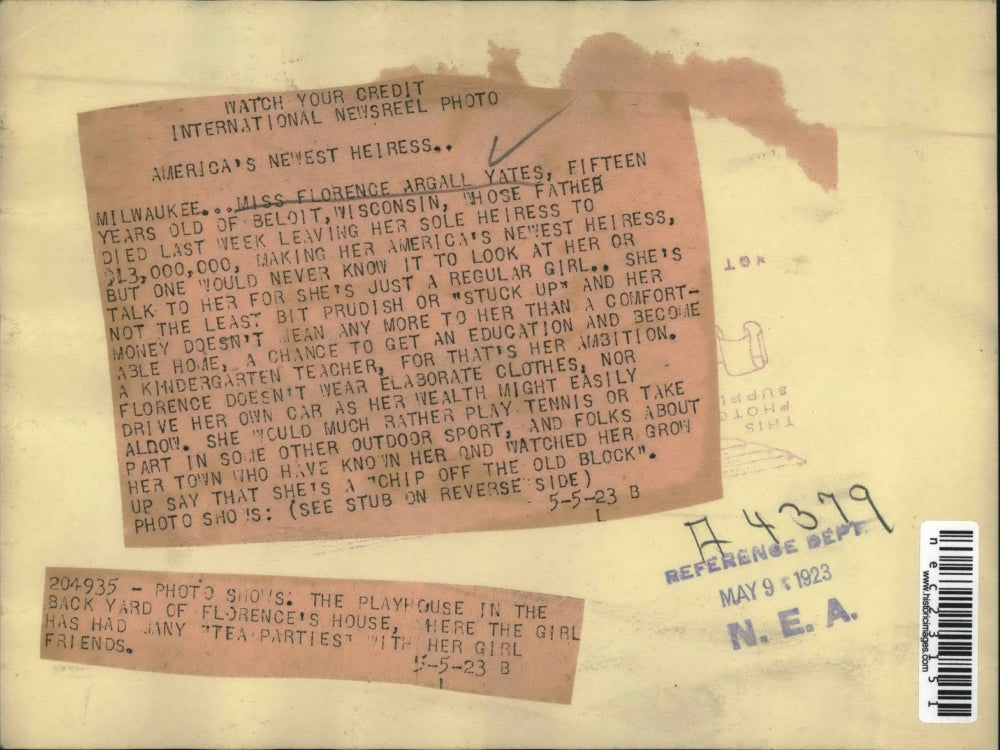 WATCH YOUR CREDIT
INTERNATIONAL NEWSREEL PHOTO
AMERICA'S NEWEST HEIRESS..
MILWAUKEE...MISS FLORENCE ARGALL YATES, FIFTEEN
YEARS OLD OF BELOIT,WISCONSIN, WHOSE FATHER
DIED LAST WEEK LEAVING HER SOLE HEIRESS TO
$13,000,000, MAKING HER AMERICA'S NEWEST HEIRESS,
BUT ONE WOULD NEVER KNOW IT TO LOOK AT HER OR
TALK TO HER FOR SHE'S JUST A REGULAR GIRL.. SHE'S
NOT THE LEAST BIT PRUDISH OR "STUCK UP" AND HER
MONEY DOESN'T MEAN ANY MORE TO HER THAN A COMFORT-
ABLE HOME, A CHANCE TO GET AN EDUCATION AND BECOME
A KINDERGARTEN TEACHER, FOR THAT'S HER AMBITION.
FLORENCE DOESN'T WEAR ELABORATE CLOTHES, NOR
DRIVE HER OWN CAR AS HER WEALTH MIGHT EASILY
ALLOW. SHE WOULD MUCH RATHER PLAY TENNIS OR TAKE
PART IN SOME OTHER OUTDOOR SPORT, AND FOLKS ABOUT
HER TOWN WHO HAVE KNOWN HER AND WATCHED HER GROW
UP SAY THAT SHE'S A "CHIP OFF THE OLD BLOCK".
PHOTO SHOWS: (SEE STUB ON REVERSE SIDE)
5-5-23 B
L
204935 - PHOTO SHOWS: THE PLAYHOUSE IN THE
BACK YARD OF FLORENCE'S HOUSE, WHERE THE GIRL
HAS HAD MANY "TEA PARTIES" WITH HER GIRL
FRIENDS.
5-5-23 B
L
NOT
THIS
PHOTO
SUPPL
A 4379
REFERENCE DEPT.
MAY 9 1923
N. E. A.
www.historicimages.com
nec23151